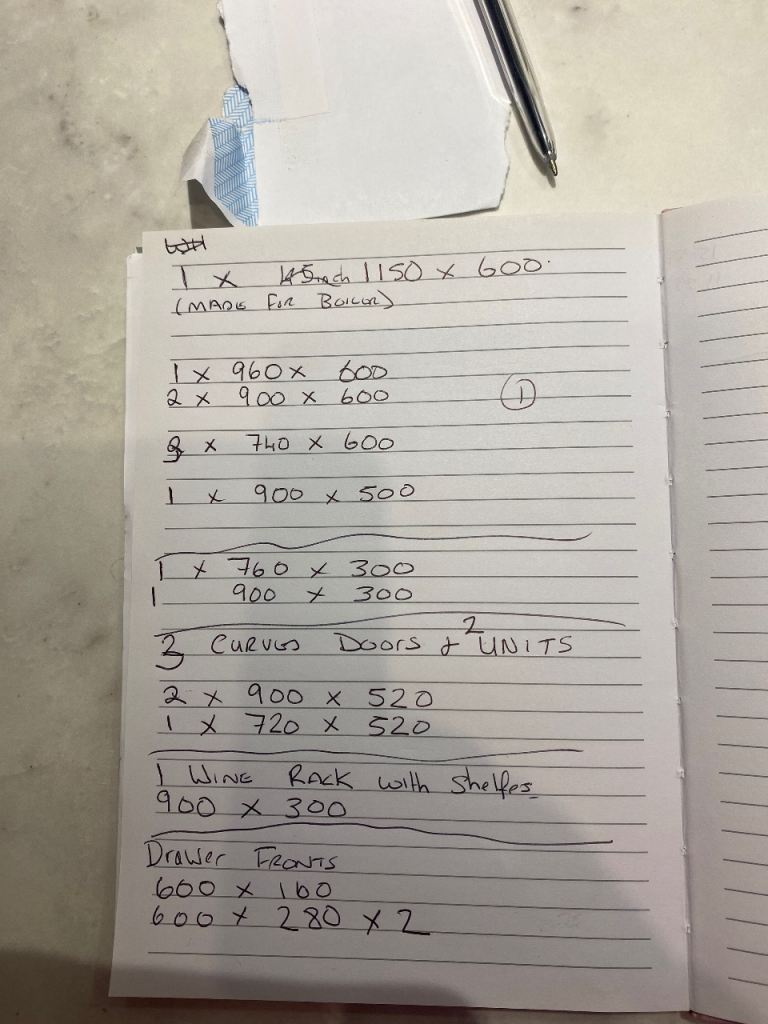 1 x 1150 x 600
(MADE FOR BOILER)
1 x 960 x 600
2 x 900 x 600
1
3 x 740 x 600
1 x 900 x 500
1 x 760 x 300
1 900 x 300
3 CURVED DOORS & 2 UNITS
2 x 900 x 520
1 x 720 x 520
1 WINE RACK with Shelfes
900 x 300
Drawer FRONTS
600 x 160
600 x 280 x 2